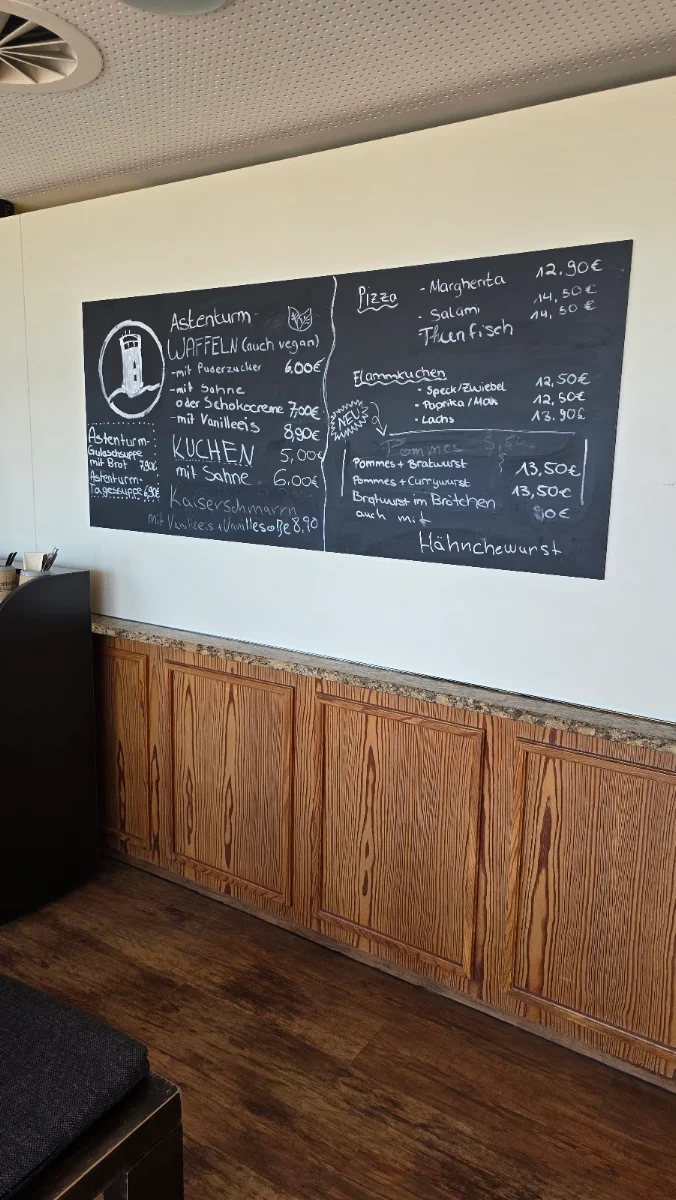 Astenturm-
WAFFELN (auch vegan)
-mit Puderzucker 6,00€
-mit Sahne
oder Schokocreme 7,00€
-mit Vanilleeis 8,90€
KUCHEN 5,00€
mit Sahne 6,00€
Kaiserschmarrn
mit Vanilleeis + Vanillesoße 8,90
Astenturm-
Gulaschsuppe
mit Brot 7,90€
Astenturm-
Tagessuppe 6,90€
Pizza - Margherita 12.90€
- Salami 14,50€
Thunfisch 14,50€
Flammkuchen
• Speck/Zwiebel 12,50€
• Paprika/Mais 12,50€
• Lachs 13.90€
NEU
Pommes
Pommes + Bratwurst 13,50€
Pommes + Currywurst 13,50€
Bratwurst im Brötchen
auch mit
Hähnchewurst